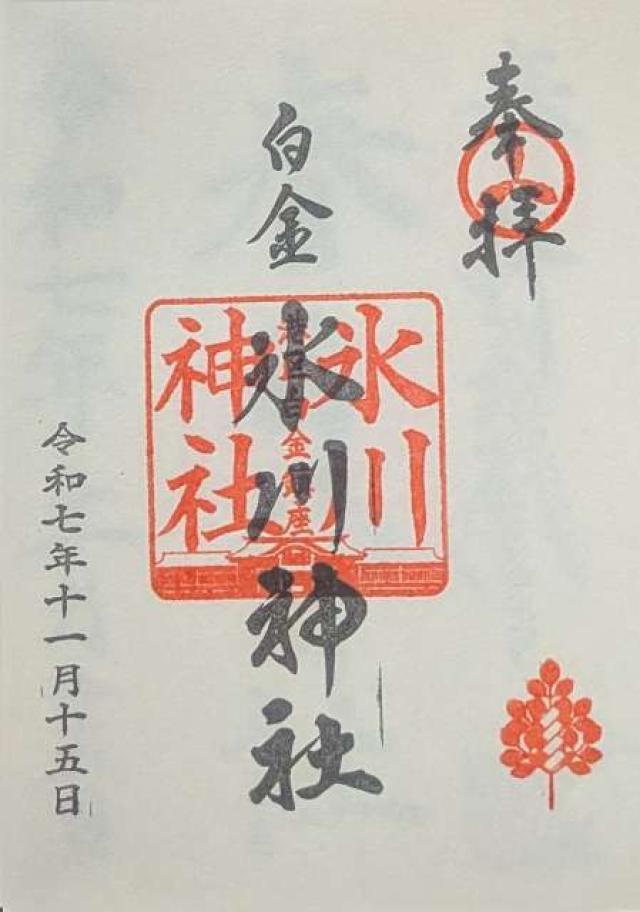 奉拝
白金
氷川神社
氷川
神社
港区白金鎮座
令和七年十一月十五日